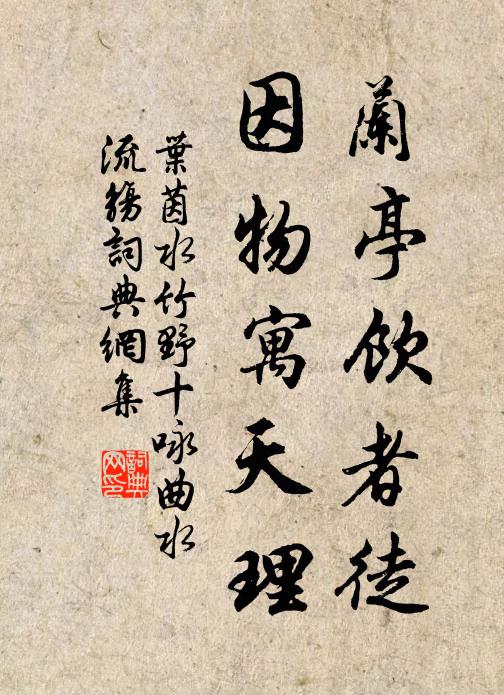 蘭亭飲者徒
因物寓天理
葉茵水竹野十咏曲水
流觴詞典網集
詞典网印